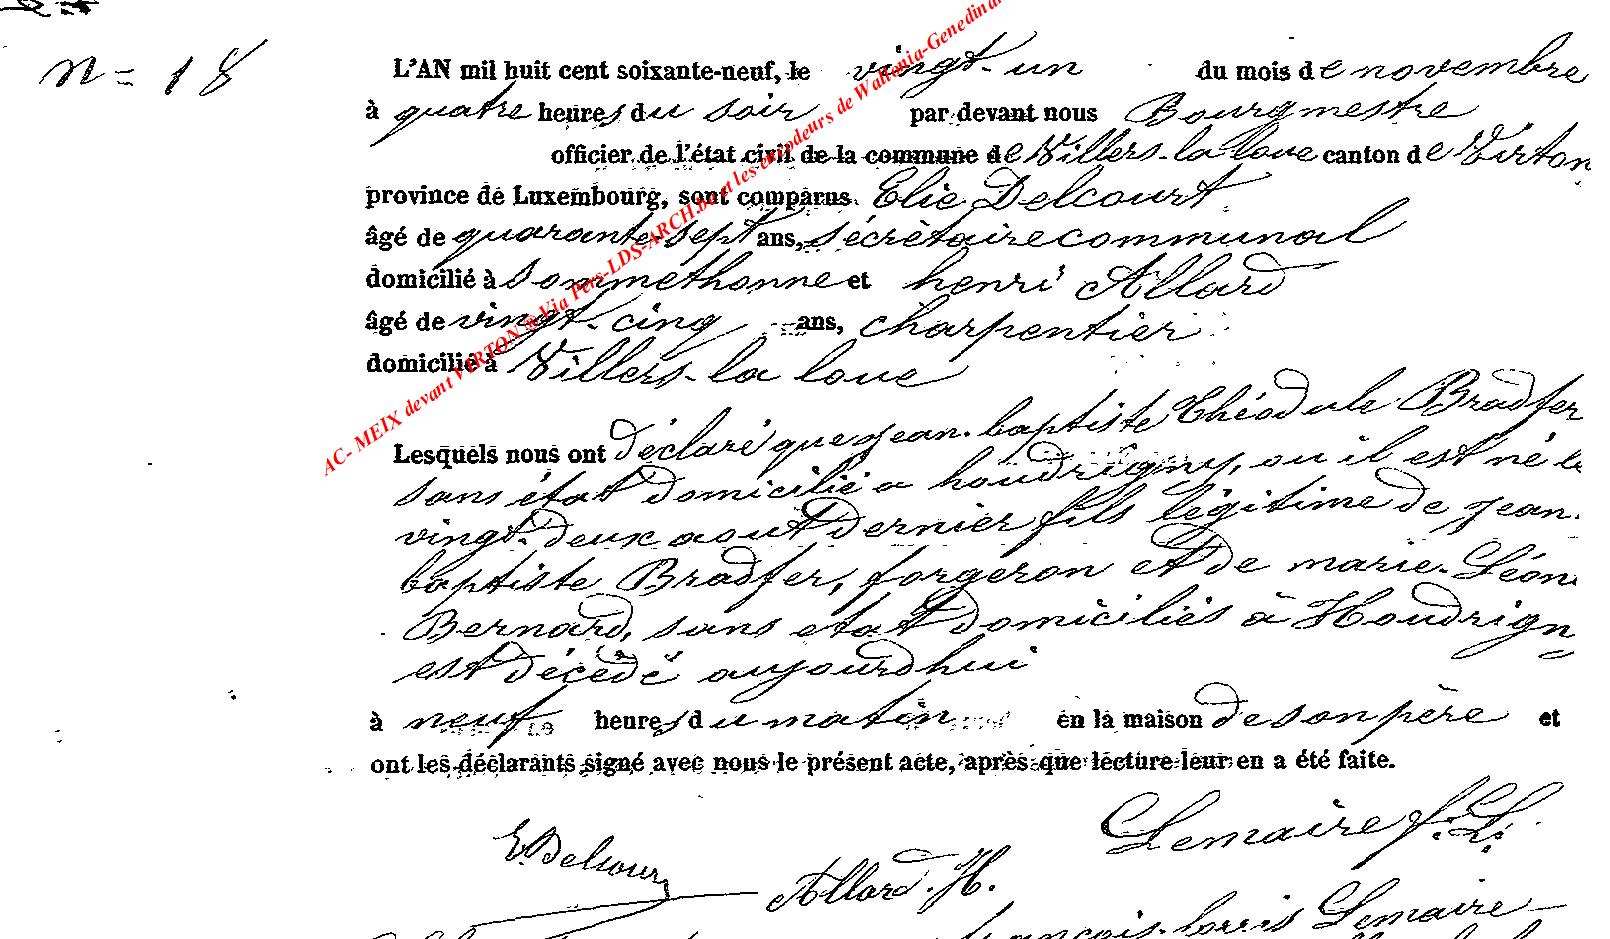 n= 18
L'AN mil huit cent soixante-neuf, le vingt-un du mois de novembre
à quatre heures du soir par devant nous Bourgmestre
officier de l'état civil de la commune de Villers-la loue canton de Virton
province de Luxembourg, sont comparus Elie Delcourt
âgé de quarante sept ans, sécrètaire communal
domicilié à Sommethonne et henri Allard
âgé de vingt-cinq ans, charpentier
domicilié à Villers-la loue
Lesquels nous ont déclaré que jean-baptiste Théodule Bradfer
sans état domicilié a houdrigny, ou il est né le
vingt-deux aout dernier fils légitime de jean-
baptiste Bradfer, forgeron et de marie-Léon
Bernard, sans etat domiciliés à Houdrign
est décédé aujourdhui
à neuf heures du matin en la maison de son père et
ont les déclarants signé avec nous le présent acte, après que lecture leur en a été faite.
Lemaire f. L.
E. Delcour
Allard. H.
françois-louis Lemaire
AC- MEIX devant VIRTON Via Pers-LDS-ARCH. les encodeurs de Wallonia-Genedinar